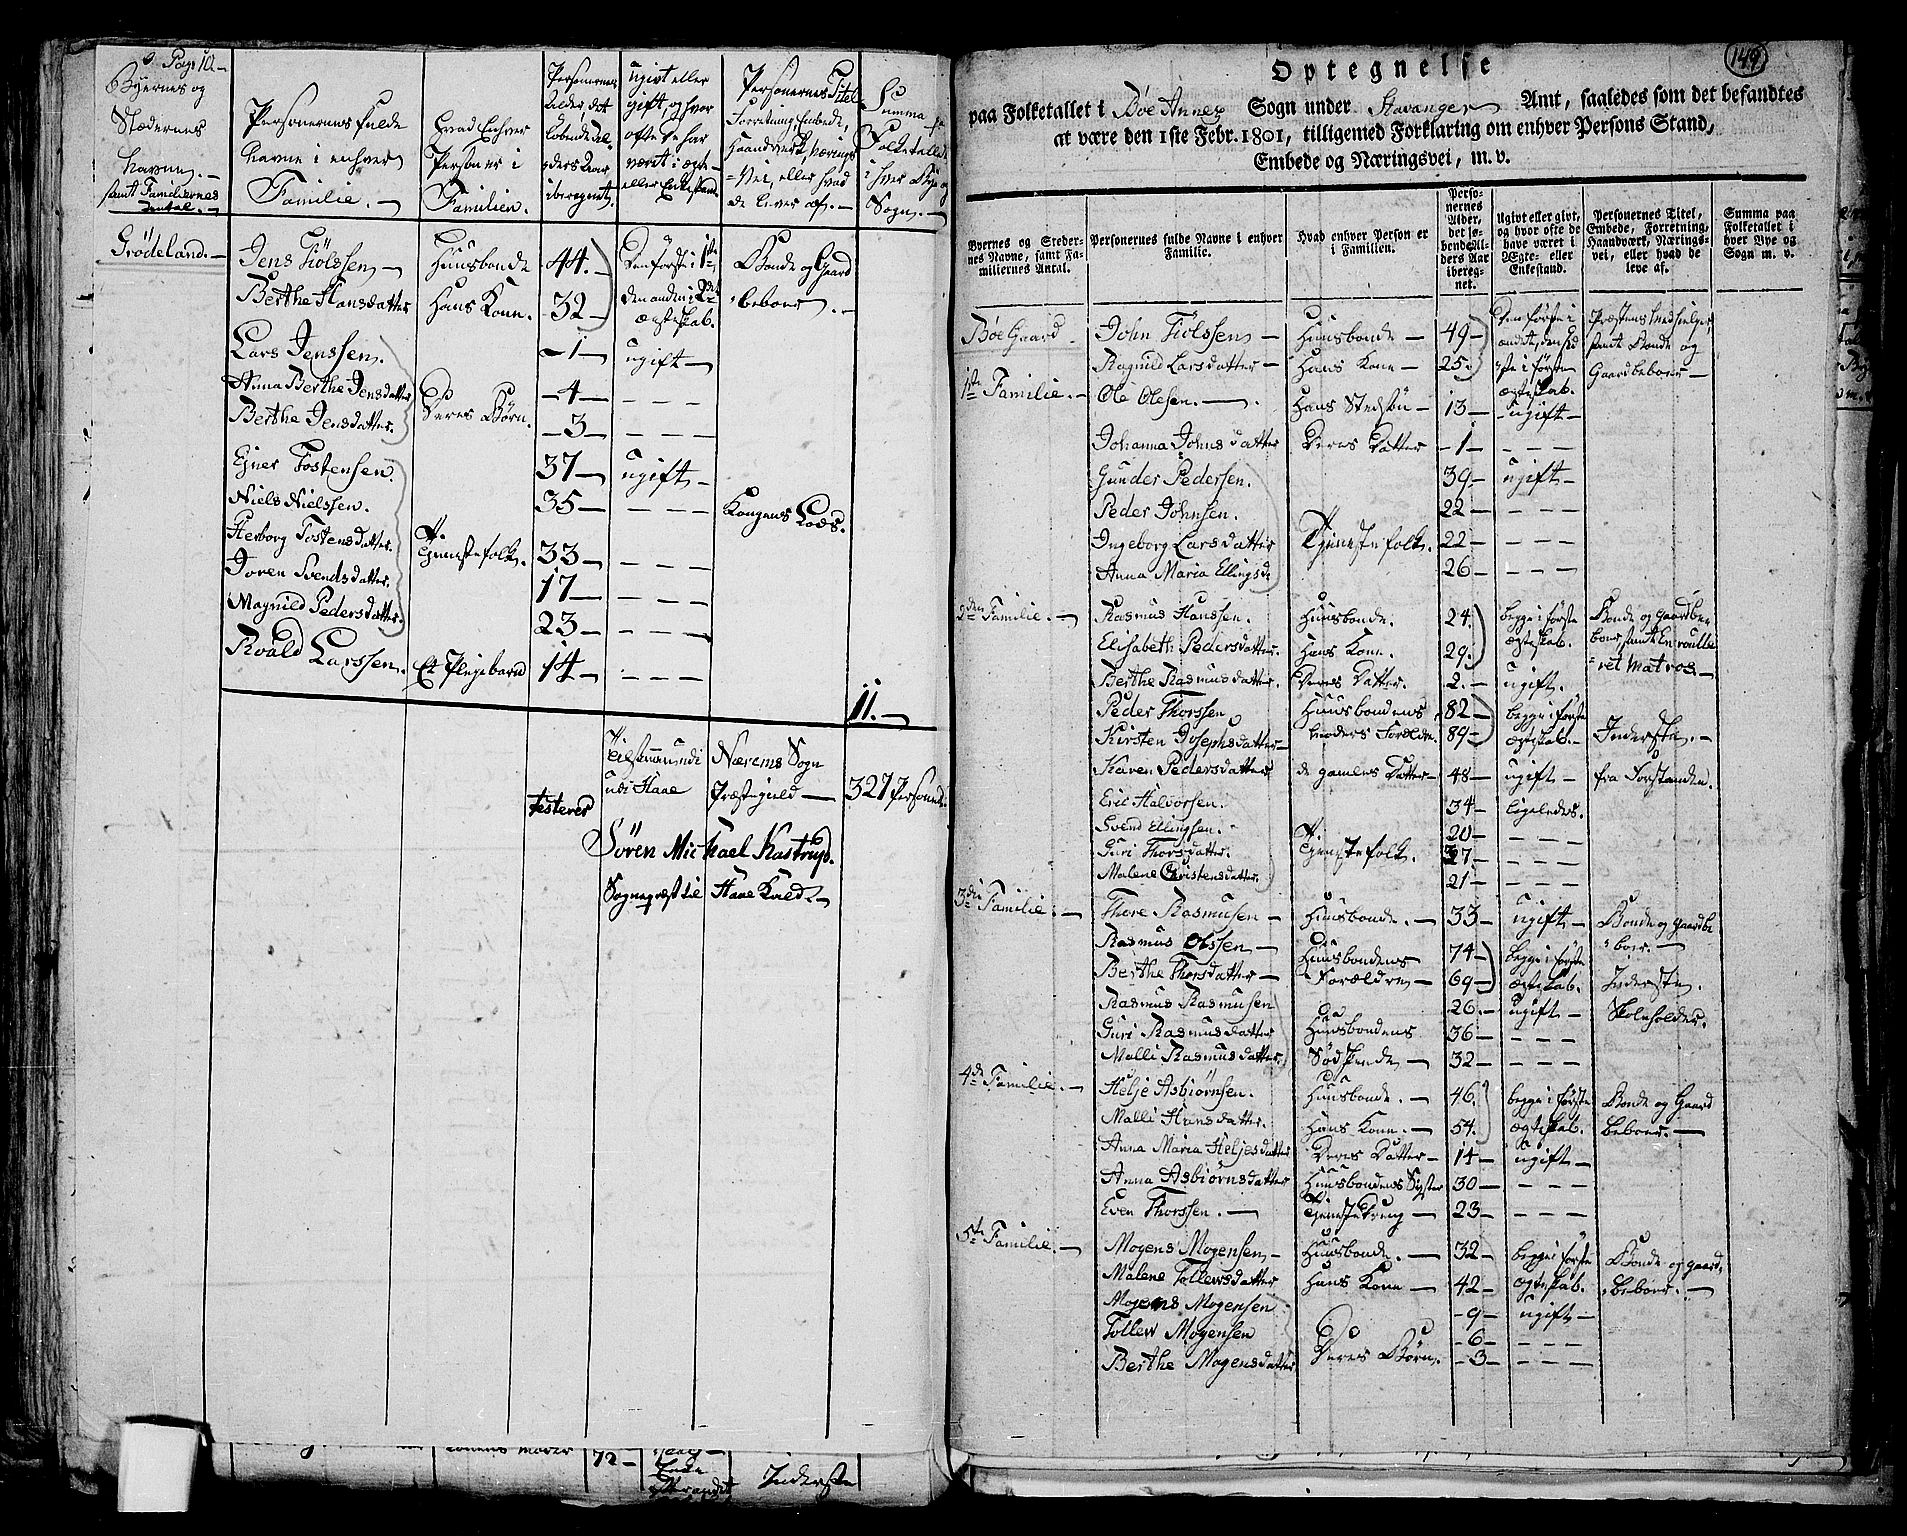 Pag: 10 —
Byernes og Stædernes Navne. — samt Familiernes Antal. —
Personernes fulde Navne i enhver Familie. —
Hvad Enhver Person er i Familien.
Personernes Alder, det løbende Alders Aar iberegnet.
Ugivt eller gift, og hvor ofte de har været i ægte- eller Enkestand.
Personernes Titel, Forretning, Embede, Haandverk, Nærings-Vei, eller hvad de lever af. —
Summa paa Folketallet i hver Bye og Sogn. —
Grødeland. — Jens Tiølssen — Huusbonde 44. — Den første i 1ste Bonde og Gaard
Berthe Hansdatter Hans Kone. 32 — den anden i 2det ægteskab. beboer. —
Lars Jenssen. — 1 — ugift —
Anna Berthe Jensdatter — 4 — — — —
Berthe Jensdatter. Deres Børn. — 3 — — — —
Ejner Tostensen. 37 — ugift —
Niels Nielssen. 35 — — — — Kongens Lods.
Herborg Tostensdatter. Tjenestefolk. 33 — — — —
Joren Svendsdatter. 17 — — — —
Magnild Pedersdatter. 23 — — — —
Roald Larssen. Et Plejebarn 14 — — — —
11. —
Tilsammen udi Nærems Sogn
udi Haae Præstegield — 327 Personer.
testerer
Søren Michael Kastrup.
Sognepræst til Haae Kald —
72 —
Inderste
149
Optegnelse
paa Folketallet i Bøe Annex Sogn under Stavanger Amt, saaledes som det befandtes
at være den 1ste Febr. 1801, tilligemed Forklaring om enhver Persons Stand,
Embede og Næringsvei, m. v.
Byernes og Stedernes Navne, samt Familiernes Antal.
Personernes fulde Navne i enhver Familie.
Hvad enhver Person er i Familien.
Personernes Alder, det løbende Alders Aar iberegnet.
Ugivt eller givt, og hvor ofte de have været i Ægte- eller Enkestand.
Personernes Titel, Embede, Forretning, Haandværk, Næringsvei, eller hvad de leve af.
Summa paa Folketallet i hver Bye og Sogn m. v.
Bøe Gaard John Tiølssen — Huusbonde — 49 — Den første i Præstens Medhielper
Ragnild Larsdatter — Hans Kone — 25. andet, den sidste i første samt Bonde og
1ste Familie. — Ole Olesen. — Hans Stedsøn — 13 — ægteskab. ugift — Gaardbeboer —
Johanna Johnsdatter Deres Datter — 1 — — — —
Gunder Pedersen. 39 — ugift —
Peder Johnsen. 22 — — — —
Ingeborg Larsdatter Tjenestefolk. 22 — — — —
Anna Maria Ellingsd: 26 — — — —
2den Familie. — Rasmus Hanssen. Huusbonde. 24. begge i første Bonde og Gaardbe
Elisabeth Pedersdatter. Hans Kone. 29. ægteskab. boer, samt Enroulle
Berthe Rasmusdatter. Deres Datter. 2. — ugift. ret Matros —
Peder Thorssen Huusbondens 82 — begge i første
Kirsten Josephsdatter — Forældre. 89 — ægteskab. — Inderste. —
Karen Pedersdatter de gamles Datter — 48 — ugift — fra Forstanden.
Eric Halvorsen. 34 — ligeledes.
Svend Ellingsen. 20 — — — —
Guri Thorsdatter. Tjenestefolk. 37 — — — —
Malene Christensdatter. 21 — — — —
3die Familie. — Thore Rasmusen — Huusbonde. — 33 — ugift — Bonde og Gaardbe
Rasmus Olssen — Huusbondens 74 — begge i første boer. —
Berthe Thorsdatter — Forældre — 69 — ægteskab. Inderste.
Rasmus Rasmusen 26. — ugift — Skoleholder.
Guri Rasmusdatter Huusbondens 36 — — — —
Malli Rasmusdatter. Sødskende — 32 — — — —
4de Familie. — Helje Asbiørnsen. Huusbonde. — 46. begge i første Bonde og Gaard
Malli Hansdatter. Hans Kone. — 54. ægteskab. beboer. —
Anna Maria Heljesdatter Deres Datter — 14 — ugift —
Anna Asbiørnsdatter Huusbondens Syster 30 — — — —
Even Thorssen. — Tjenestedreng — 23 — — — —
5te Familie. — Mogens Mogensen — Huusbonde. — 32 — begge i første Bonde og Gaard
Malene Tollewsdatter Hans Kone — 42 — ægteskab. beboer. —
Mogens Mogensen — 9 — ugift —
Tollew Mogensen — 6 — — — —
Berthe Mogensdatter Deres Børn. — 3 — — — —